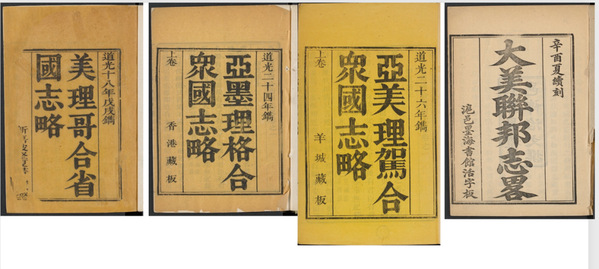 道光十八年戊戌鐫
美理哥合省
國志略
道光二十四年鐫
亞墨理格合
衆國志略
上卷 香港藏板
道光二十六年鐫
亞美理駕合
衆國志略
上卷 羊城藏板
辛酉夏續刻
大美聯邦志畧
滬邑墨海書館活字板